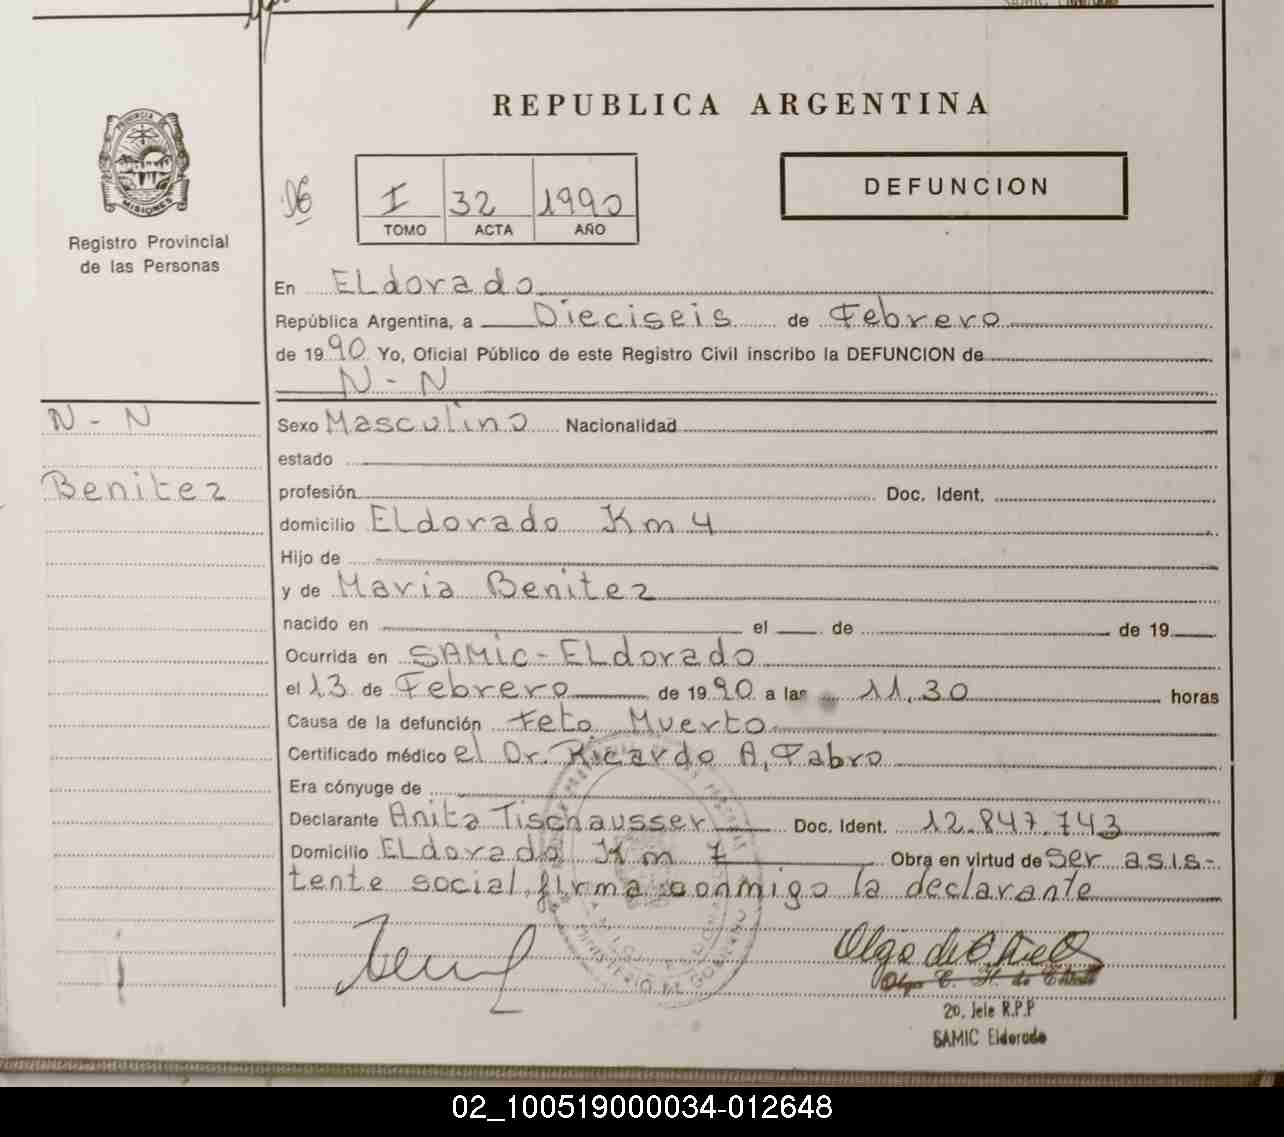 REPUBLICA ARGENTINA
PROVINCIA DE
MISIONES
Registro Provincial
de las Personas
I 32 1990
TOMO ACTA AÑO
DEFUNCION
En ELdorado
República Argentina, a Dieciseis de Febrero
de 1990 Yo, Oficial Público de este Registro Civil inscribo la DEFUNCION de
N - N
N - N
Benitez
Sexo Masculino Nacionalidad
estado
profesión Doc. Ident.
domicilio ELdorado Km 4
Hijo de
y de Maria Benitez
nacido en el de de 19
Ocurrida en SAMic-ELdorado
el 13 de Febrero de 1990 a las 11,30 horas
Causa de la defunción Feto Muerto
Certificado médico el Dr. Ricardo A, Fabro
Era cónyuge de
Declarante Anita Tischausser Doc. Ident. 12.847.743
Domicilio ELdorado Km 7 Obra en virtud de Ser asis-
tente social, firma conmigo la declarante
MINISTERIO DE GOBIERNO
2o. Jefe R.P.P
SAMIC Eldorado
02_100519000034-012648